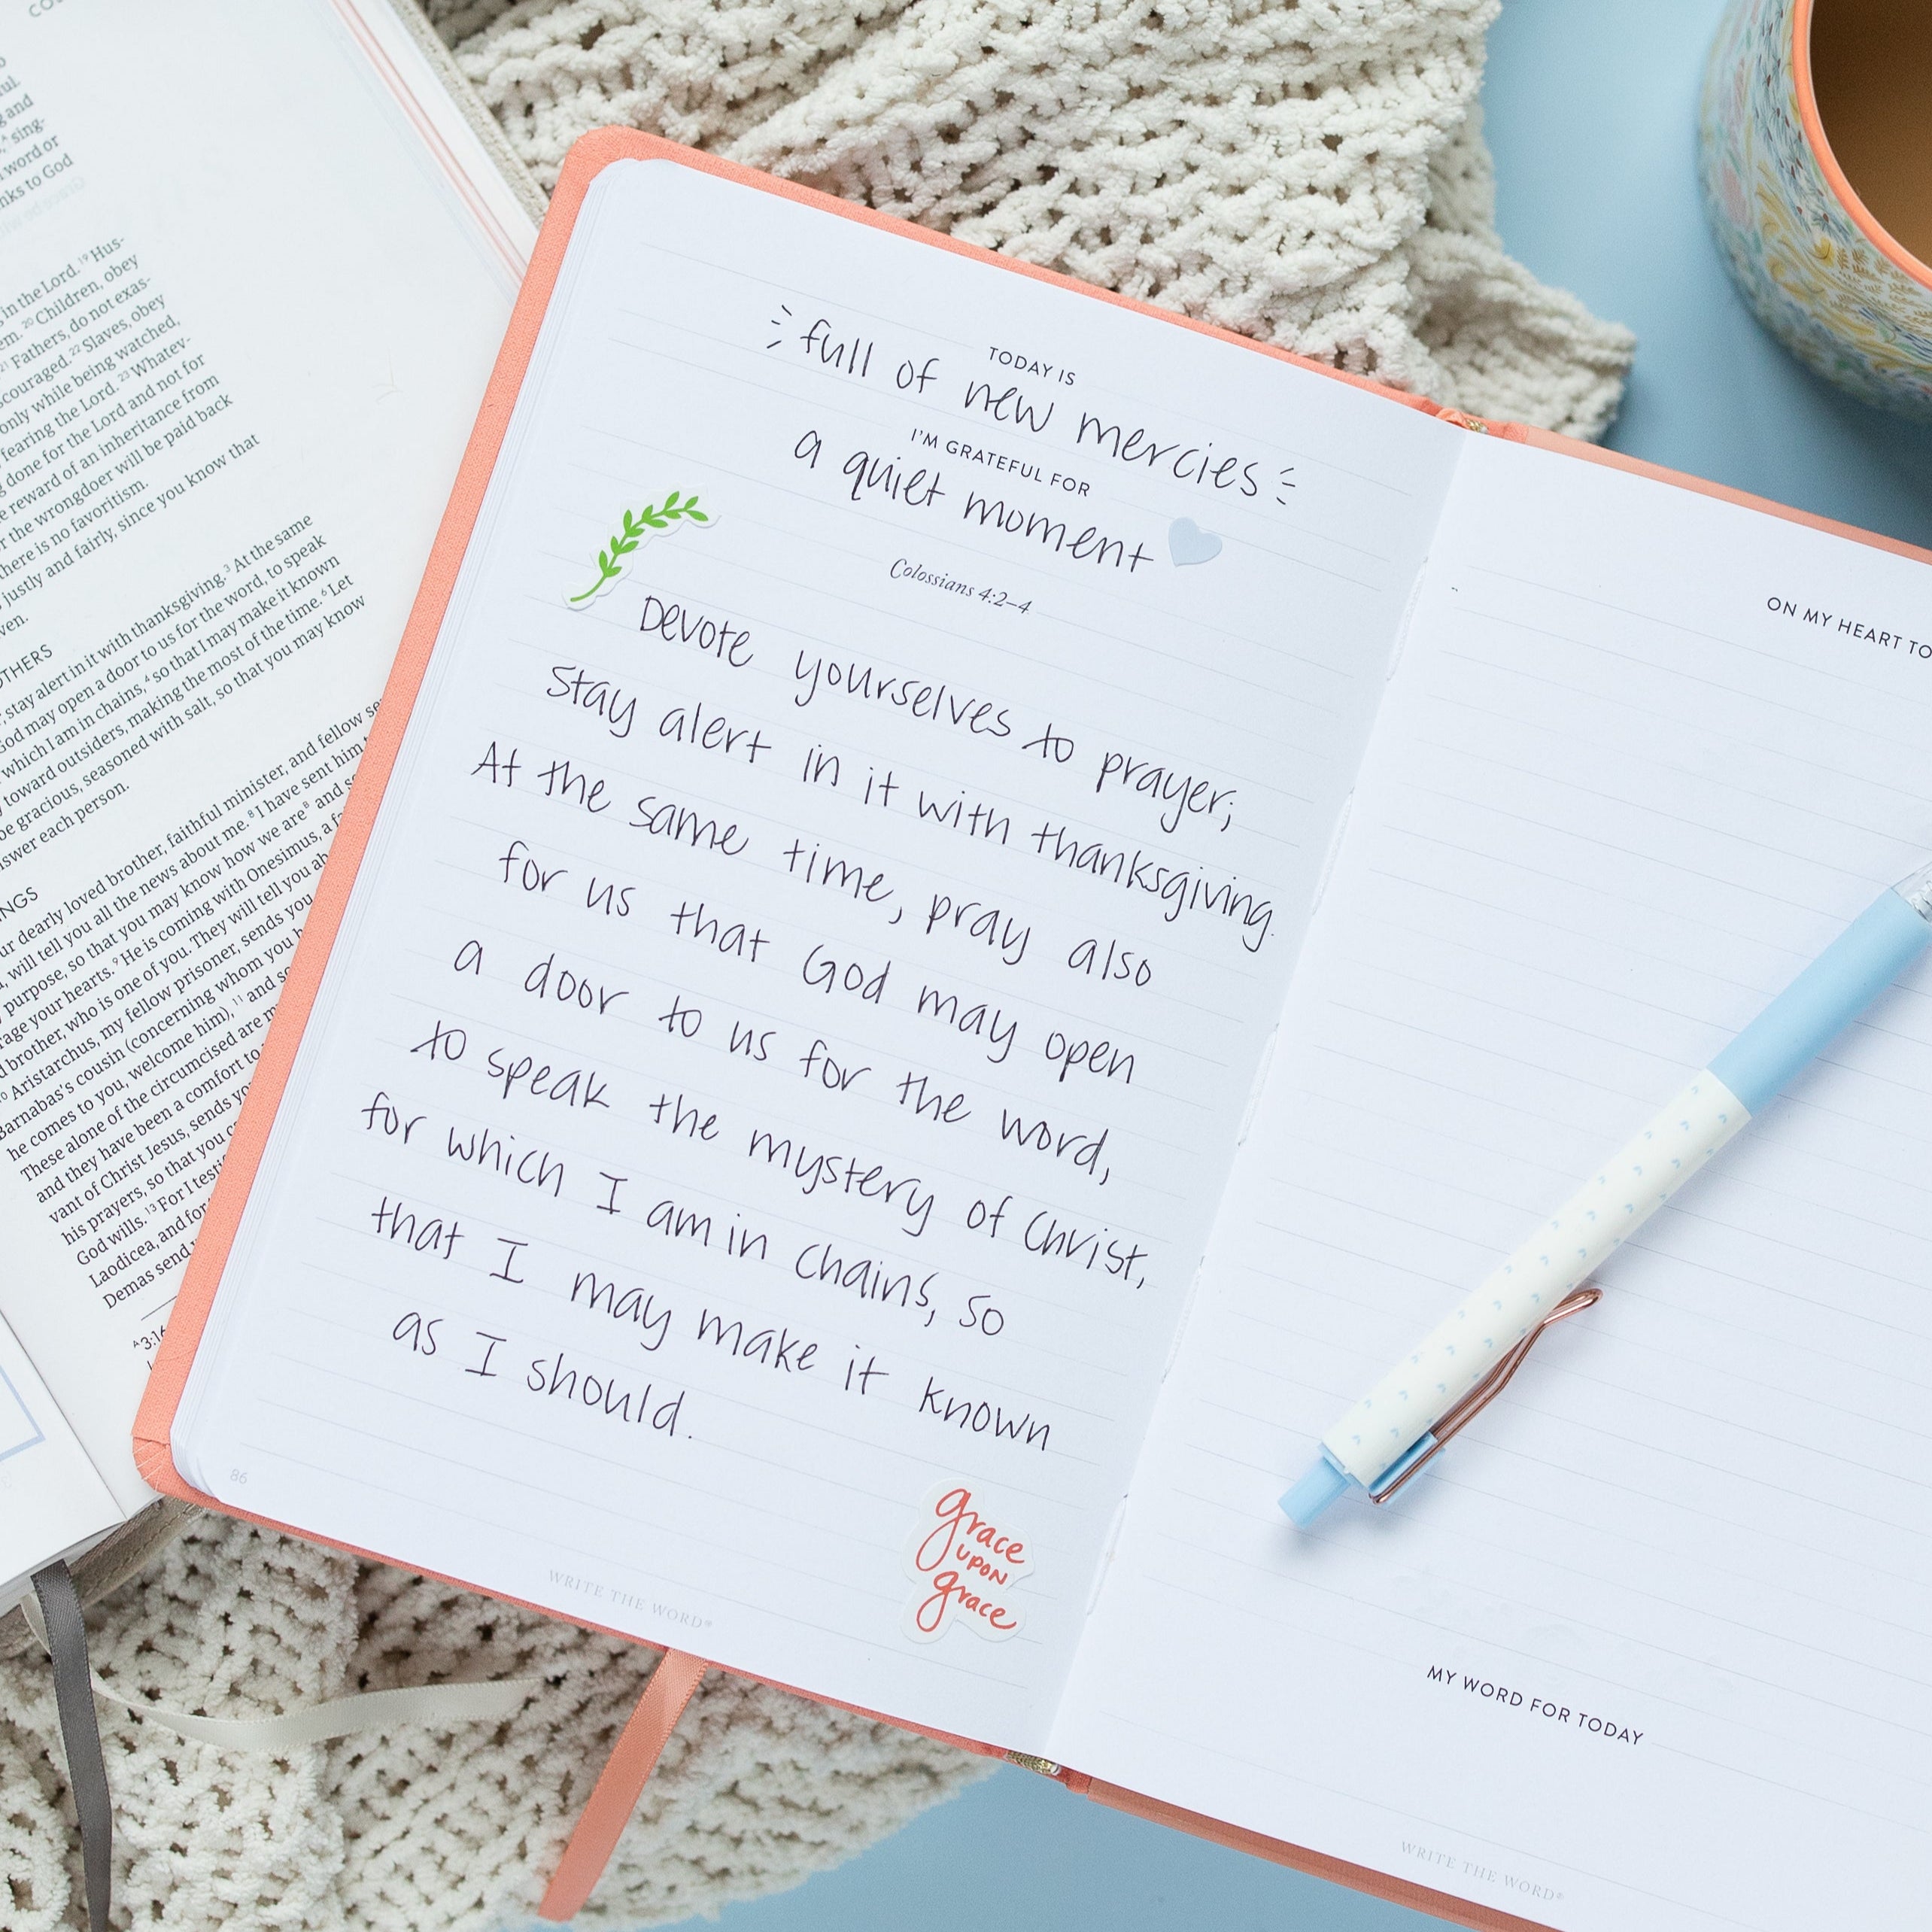 in the Lord. 19 Hus-
20 Children, obey
21 Fathers, do not exas-
22 Slaves, obey
only while being watched,
fearing the Lord. 23 Whatev-
done for the Lord and not for
reward of an inheritance from
the wrongdoer will be paid back
there is no favoritism.
justly and fairly, since you know that
stay alert in it with thanksgiving. 3 At the same
God may open a door to us for the word, to speak
which I am in chains, 4 so that I may make it known
toward outsiders, making the most of the time. 6 Let
be gracious, seasoned with salt, so that you may know
answer each person.
dearly loved brother, faithful minister, and fellow
will tell you all the news about me. 8 I have sent him
purpose, so that you may know how we are 8 and
your hearts. 9 He is coming with Onesimus, a
brother, who is one of you. They will tell you
10 Aristarchus, my fellow prisoner, sends you
Barnabas's cousin (concerning whom you
he comes to you, welcome him), 11 and so
These alone of the circumcised are
and they have been a comfort to
vant of Christ Jesus, sends you
his prayers, so that you
God wills. 13 For I
Laodicea, and for
Demas send
TODAY IS
full of new mercies
I'M GRATEFUL FOR
a quiet moment
Colossians 4:2–4
Devote yourselves to prayer;
Stay alert in it with thanksgiving.
At the same time, pray also
for us that God may open
a door to us for the word,
to speak the mystery of Christ,
for which I am in chains, so
that I may make it known
as I should.
86
WRITE THE WORD®
grace
UPON
grace
ON MY HEART TO
MY WORD FOR TODAY
WRITE THE WORD®